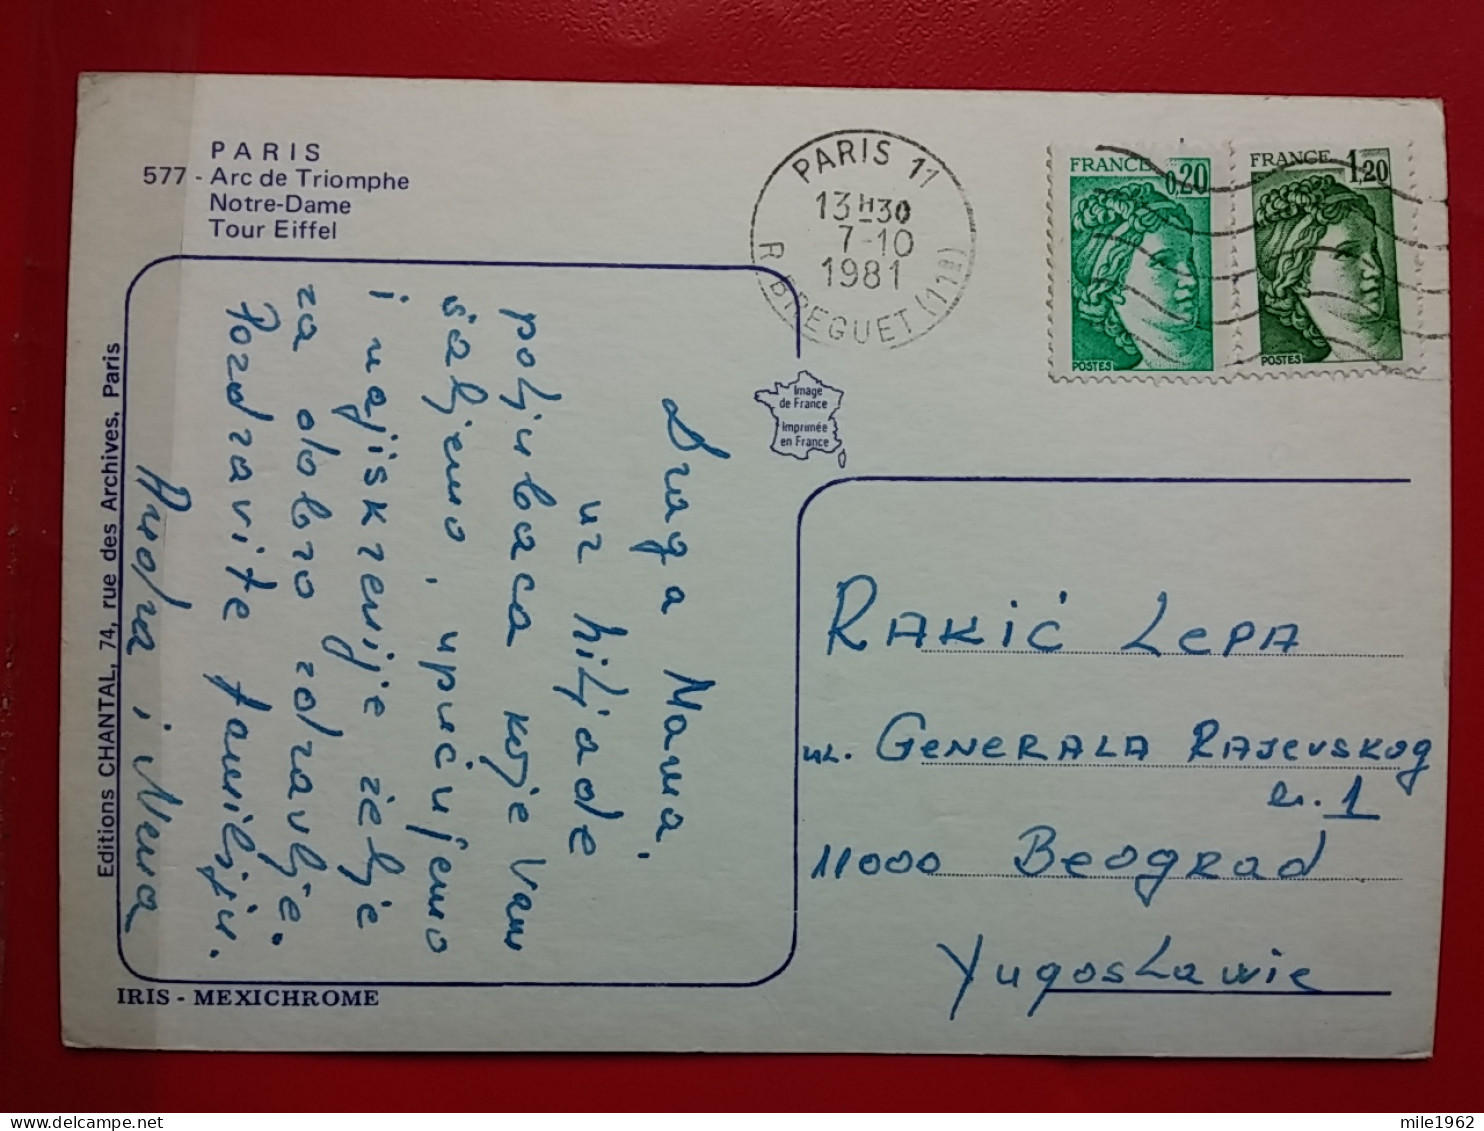 PARIS
577 - Arc de Triomphe
Notre-Dame
Tour Eiffel
PARIS 11
13H30
7-10
1981
R. BREGUET (11E)
FRANCE 0,20
POSTES
FRANCE 1,20
POSTES
Image
de France
Imprimée
en France
Editions CHANTAL, 74, rue des Archives, Paris
Draga Mama,
uz hiljade
poljubaca koje Vam
šaljemo, upućujemo
i najiskrenije želje
za dobro zdravlje.
Pozdravite familiju.
i Nena
RAKIĆ LEPA
ul. GENERALA RAJEVSKOG
br. 1
11000 BEOGRAD
Yugoslavie
IRIS - MEXICHROME
mile1962